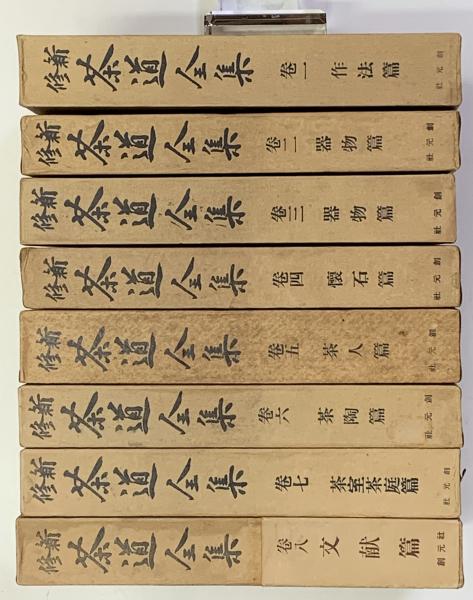 新修 茶道全集 巻一 作法篇 創元社
新修 茶道全集 巻二 器物篇 創元社
新修 茶道全集 巻三 器物篇 創元社
新修 茶道全集 巻四 懐石篇 創元社
新修 茶道全集 巻五 茶人篇 創元社
新修 茶道全集 巻六 茶陶篇 創元社
新修 茶道全集 巻七 茶室茶庭篇 創元社
新修 茶道全集 巻八 文献篇 創元社